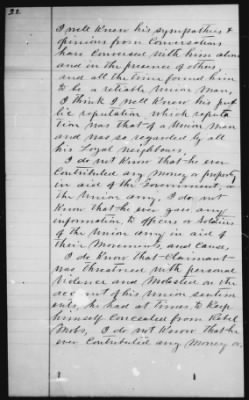 22.
I well Know his sympathies &
opinions from Conversations
have Conversed with him alone
and in the presence of others,
and all the time found him
to be a reliable Union Man,
I think I well Know his pub
lic reputation which reputa
tion was that of a Union Man
and was so regarded by all
his Loyal Neighbours.
I do not Know that he ever
Contributed any Money or property
in aid of the Government, or
the Union Army. I do not
Know that he ever gave any
information to officers or Soldiers
of the Union Army in aid of
their Movements and Cause,
I do Know that Claimant
was threatened with personal
Violence and Molested on the
account of his Union sentim
ents, he had at times to Keep
himself Concealed from Rebel
Mobs, I do not Know that he
ever Contributed any Money or